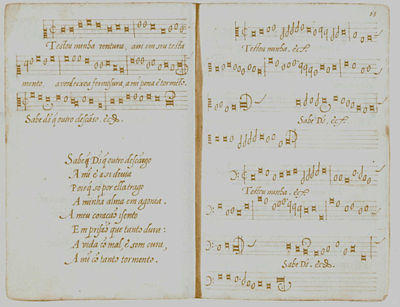 Testou minha ventura, ami em seu testa
mento. a verdeixea fermosura, a mi pena e tormeto.
Sabe di q outro descaso. &c.
Sabeq Di q outro descanso
A mi é a si diuia
Poreq so por ella trago
A minha alma em agonia.
A meu coracaõ isento
Em prisaõ que tanto dura:
A vida co mal, é sem cura,
A mi co tanto tormento.
Testou minha. &c.
Sabe Di. &c.
Testou minha. &c.
Sabe Di. &c.